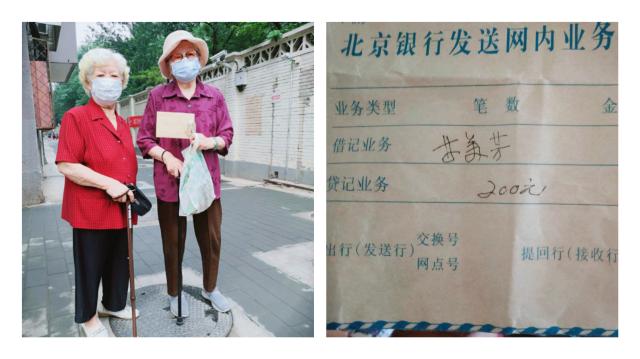 北京银行发送网内业务
业务类型 笔数 金
借记业务
贷记业务 200元
出行(发送行) 交换号
网点号
提回行(接收行